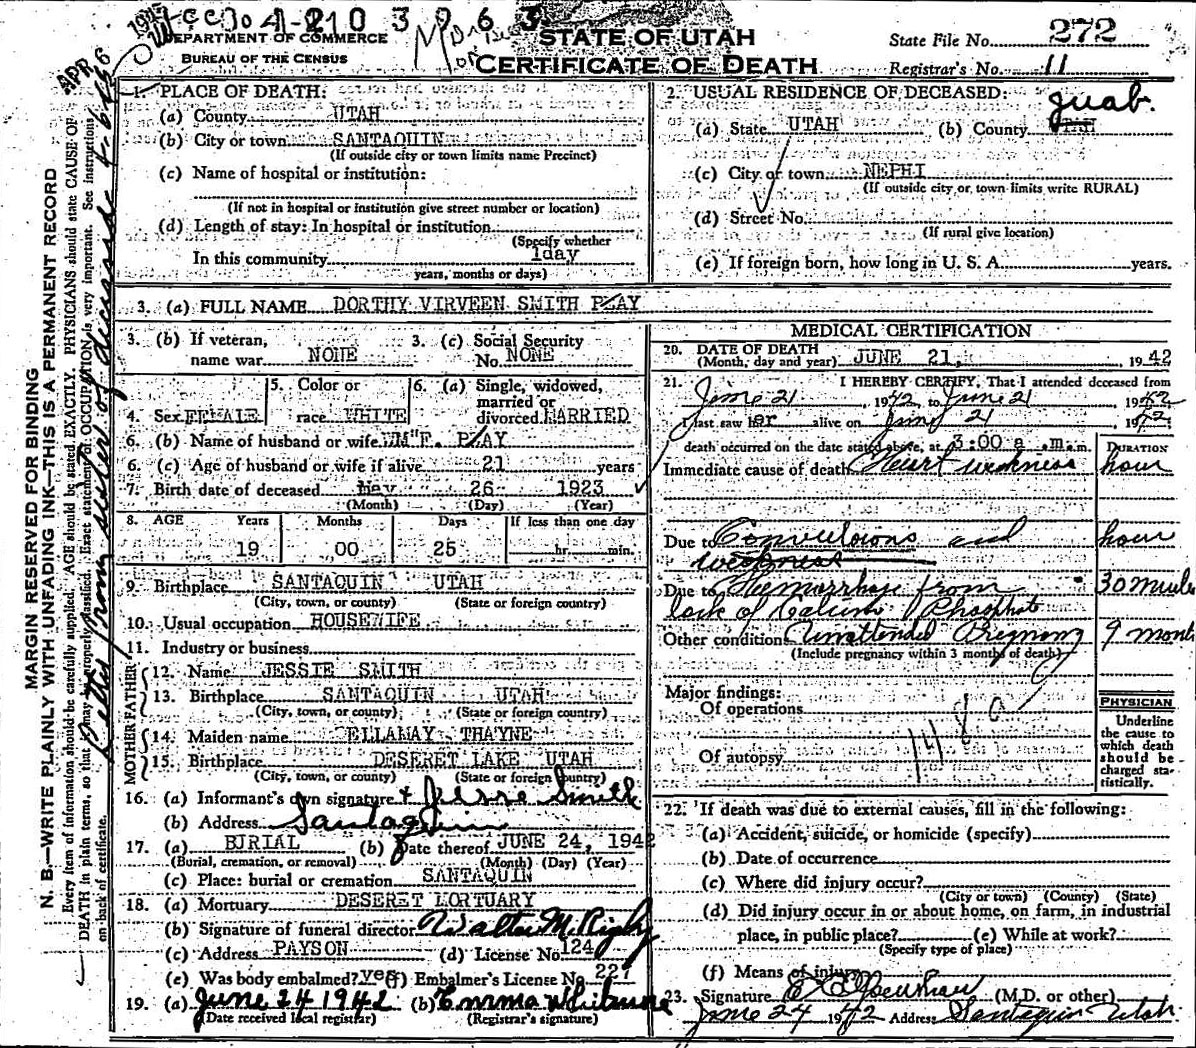 APR 6
1943
3 9 6 3
DEPARTMENT OF COMMERCE
BUREAU OF THE CENSUS
STATE OF UTAH
CERTIFICATE OF DEATH
State File No. 272
Registrar's No. 11
MARGIN RESERVED FOR BINDING
N. B.—WRITE PLAINLY WITH UNFADING INK—THIS IS A PERMANENT RECORD
Every item of information should be carefully supplied. AGE should be stated EXACTLY. PHYSICIANS should state CAUSE OF
DEATH in plain terms, so that it may be properly classified. Exact statement of OCCUPATION is very important. See instructions
on back of certificate.
1. PLACE OF DEATH:
(a) County UTAH
(b) City or town SANTAQUIN
(If outside city or town limits name Precinct)
(c) Name of hospital or institution:
(If not in hospital or institution give street number or location)
(d) Length of stay: In hospital or institution
(Specify whether
In this community 1day
years, months or days)
2. USUAL RESIDENCE OF DECEASED:
(a) State UTAH (b) County Juab.
(c) City or town NEPHI
(If outside city or town limits write RURAL)
(d) Street No.
(If rural give location)
(e) If foreign born, how long in U. S. A. years.
3. (a) FULL NAME DORTHY VIRVEEN SMITH PLAY
3. (b) If veteran, name war NONE
3. (c) Social Security No. NONE
4. Sex FEMALE
5. Color or race WHITE
6. (a) Single, widowed, married or divorced MARRIED
6. (b) Name of husband or wife WM F. PLAY
6. (c) Age of husband or wife if alive 21 years
7. Birth date of deceased May 26 1923
(Month) (Day) (Year)
8. AGE Years Months Days If less than one day
19 00 25 hr. min.
9. Birthplace SANTAQUIN UTAH
(City, town, or county) (State or foreign country)
10. Usual occupation HOUSEWIFE
11. Industry or business
FATHER
12. Name JESSIE SMITH
13. Birthplace SANTAQUIN UTAH
(City, town, or county) (State or foreign country)
MOTHER
14. Maiden name ELLAMAY THAYNE
15. Birthplace DESERET LAKE UTAH
(City, town, or county) (State or foreign country)
16. (a) Informant's own signature Jesse Smith
(b) Address Santaquin
17. (a) BURIAL (b) Date thereof JUNE 24, 1942
(Burial, cremation, or removal) (Month) (Day) (Year)
(c) Place: burial or cremation SANTAQUIN
18. (a) Mortuary DESERET MORTUARY
(b) Signature of funeral director Walter M. Rigby
(c) Address PAYSON (d) License No 124
(e) Was body embalmed? yes (f) Embalmer's License No 227
19. (a) June 24 1942 (b) Emma Whitmore
(Date received local registrar) (Registrar's signature)
MEDICAL CERTIFICATION
20. DATE OF DEATH
(Month, day and year) JUNE 21, 1942
21. I HEREBY CERTIFY, That I attended deceased from
June 21, 1942, to June 21 1942
I last saw her alive on June 21 1942
death occurred on the date stated above, at 3:00 a.m. m.
DURATION
Immediate cause of death Heart weakness hour
Due to Convulsions and hour
weakness
Due to Hemorrhage from 30 minute
lack of Calcium Phosphate
Other conditions Unattended Pregnancy 9 month
(Include pregnancy within 3 months of death)
Major findings:
Of operations
Of autopsy
148a
PHYSICIAN
Underline
the cause to
which death
should be
charged sta-
tistically.
22. If death was due to external causes, fill in the following:
(a) Accident, suicide, or homicide (specify)
(b) Date of occurrence
(c) Where did injury occur?
(City or town) (County) (State)
(d) Did injury occur in or about home, on farm, in industrial
place, in public place? (e) While at work?
(Specify type of place)
(f) Means of injury
23. Signature (M.D. or other)
June 24 1942 Address Santaquin Utah.